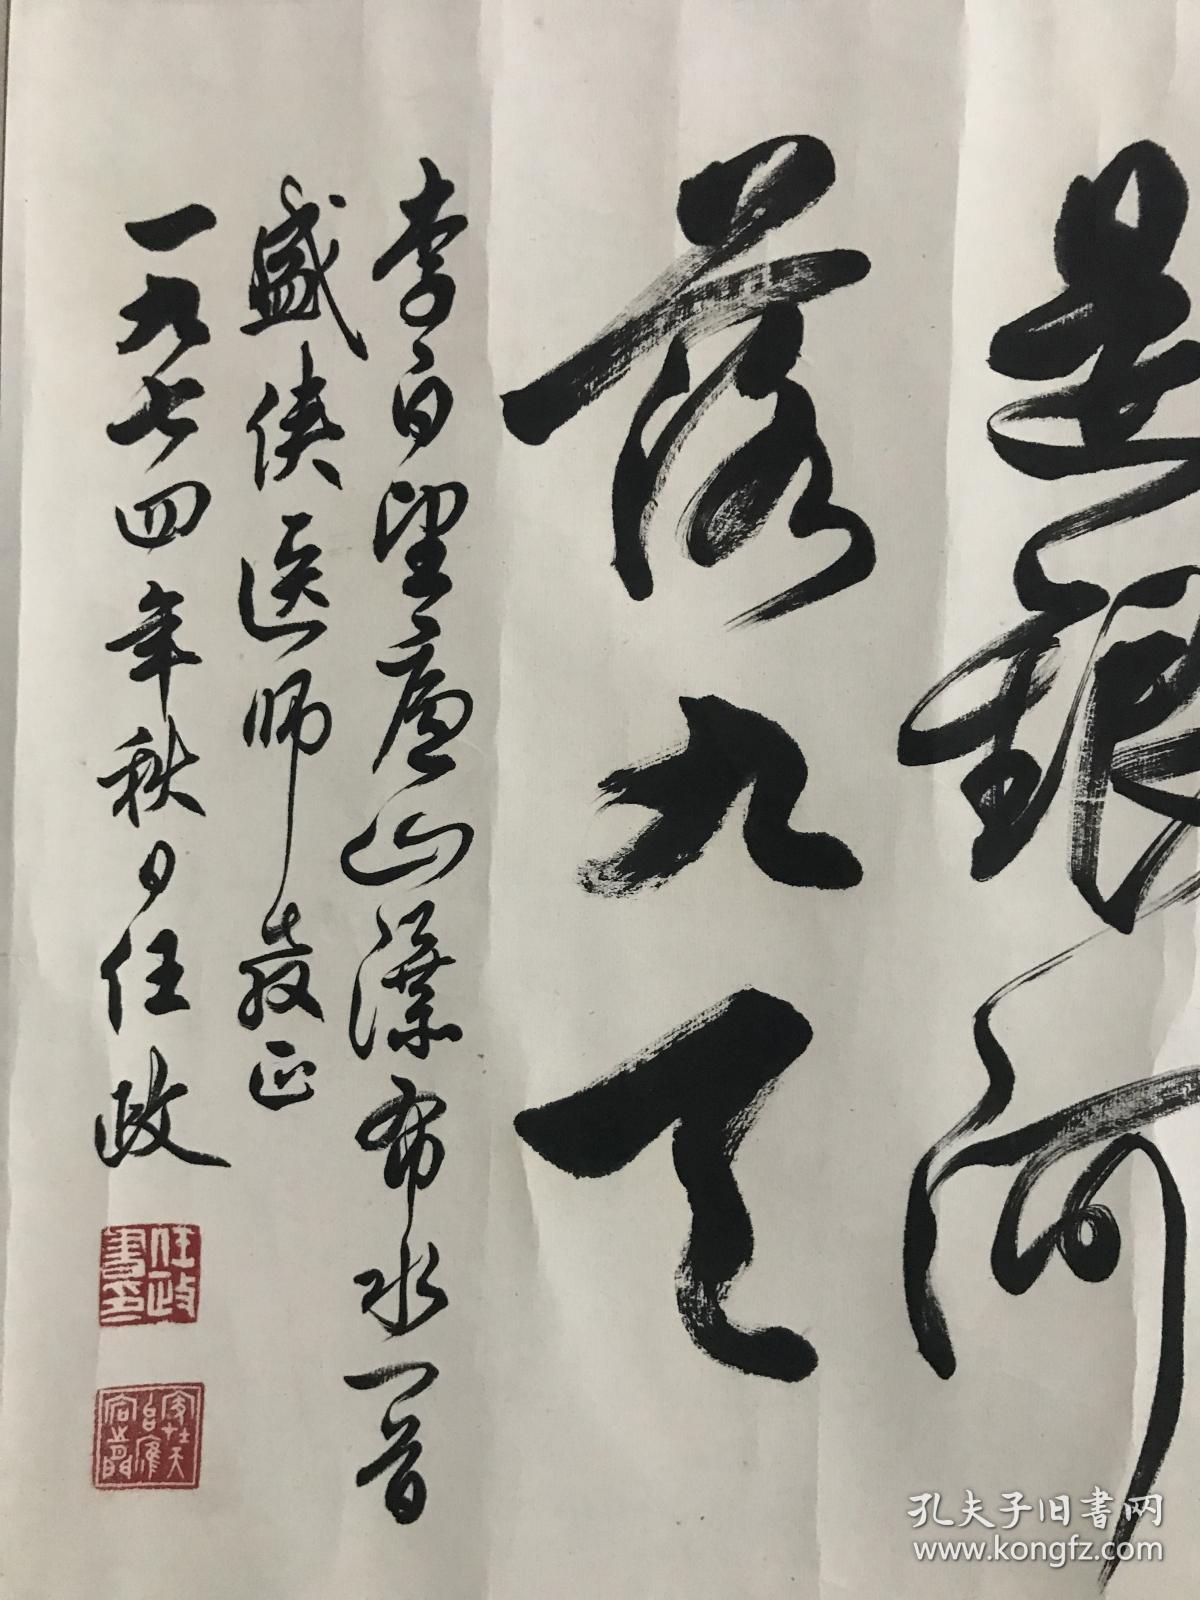 是银河
落九天
李白望庐山瀑布水一首
盛侠医师教正
一九七四年秋日任政
任政书印
孔夫子旧书网
www.kongfz.com